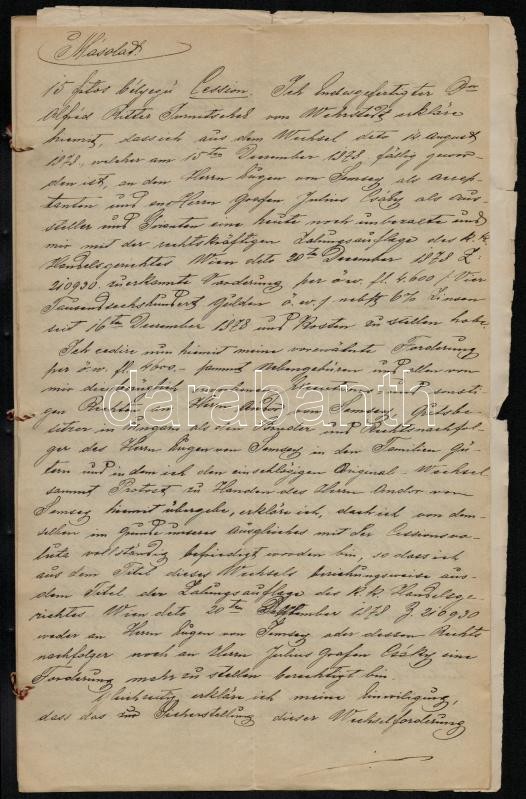 Másolat.
15 fros bélyegü Cession. Ich Endesgefertigter Dor
Alfréd Ritter von Wehrstedt erkläre
hiemit, dass ich aus dem Wechsel dto 14 August
1878, welcher am 15ten Dezember 1878 fällig gewor-
den ist, an den Herrn Eugen von Semsey als Accep-
tanten und an Herrn Grafen Julius Csáky als Aus-
steller und Giranten eine heute noch unbezalte und
mir mit der rechtskräftigen Zalungsauflage des k. k.
Handelsgerichtes Wien dto 20ten Dezember 1878 Z:
210930 zuerkannte Vorderung per ö w. fl. 4.600 / Vier
Tausendsechshundert Gulden ö. w. / nebst 6% Zinsen
seit 16ten Dezember 1878 und Kosten zu stellen habe.
Ich cedire nun hiemit meine vorerwähnte Forderung
per ö. w. fl. 4600.- sammt Nebengebüren und allen von
mir und sonsti-
gen Rechten an Herrn Andor von Semsey, Gutsbe-
sitzer in Ungarn als den und Rechtsnachfol-
ger des Herrn Eugen von Semsey in den Familien Gü-
tern und in dem ich den einschlägigen Original-Wechsel
sammt Protest zu Handen des Herrn Andor von
Semsey hiemit übergebe, erkläre ich, dass ich von dem-
selben im Grunde unseres Ausgleiches mit der Cessionsva-
luta vollständig befriedigt worden bin, so dass ich
aus dem Titel dieses Wechsels beziehungsweise aus
dem Titel der Zalungsauflage des k. k. Handelsge-
richtes Wien dto 20ten Dezember 1878 Z. 210930
weder an Herrn Eugen von Semsey oder dessen Rechts
nachfolger noch an Herrn Julius Grafen Csáky eine
Forderung mehr zu stellen berechtigt bin.
Gleichzeitig erkläre ich meine Einwilligung,
dass das zur Sicherstellung dieser Wechselforderung
darabanth